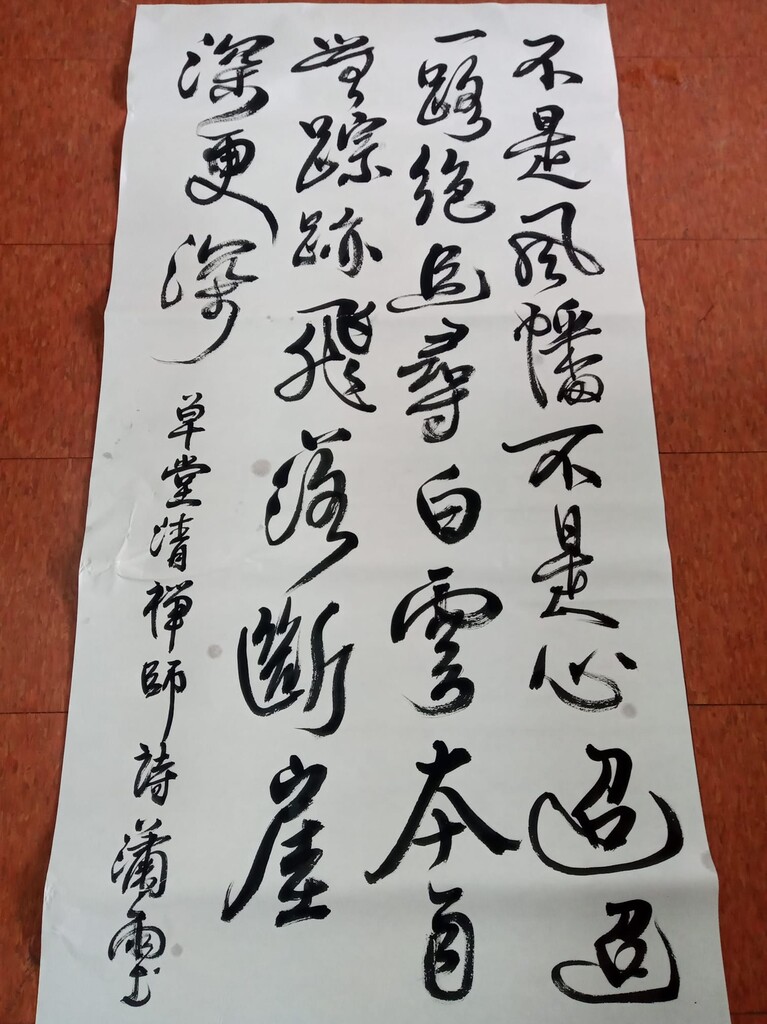 不是風幡不是心迢迢
一路絕追尋白雲本自
無蹤跡飛落斷崖
深更深
草堂清禪師詩瀟雨书